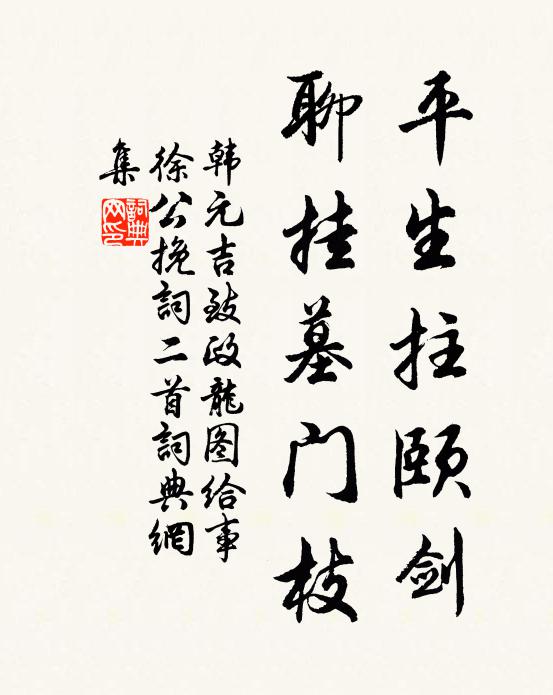 平生拄颐剑
聊挂墓门枝
韩元吉致政龙图给事
徐公挽詞二首詞典網
集
詞典網印